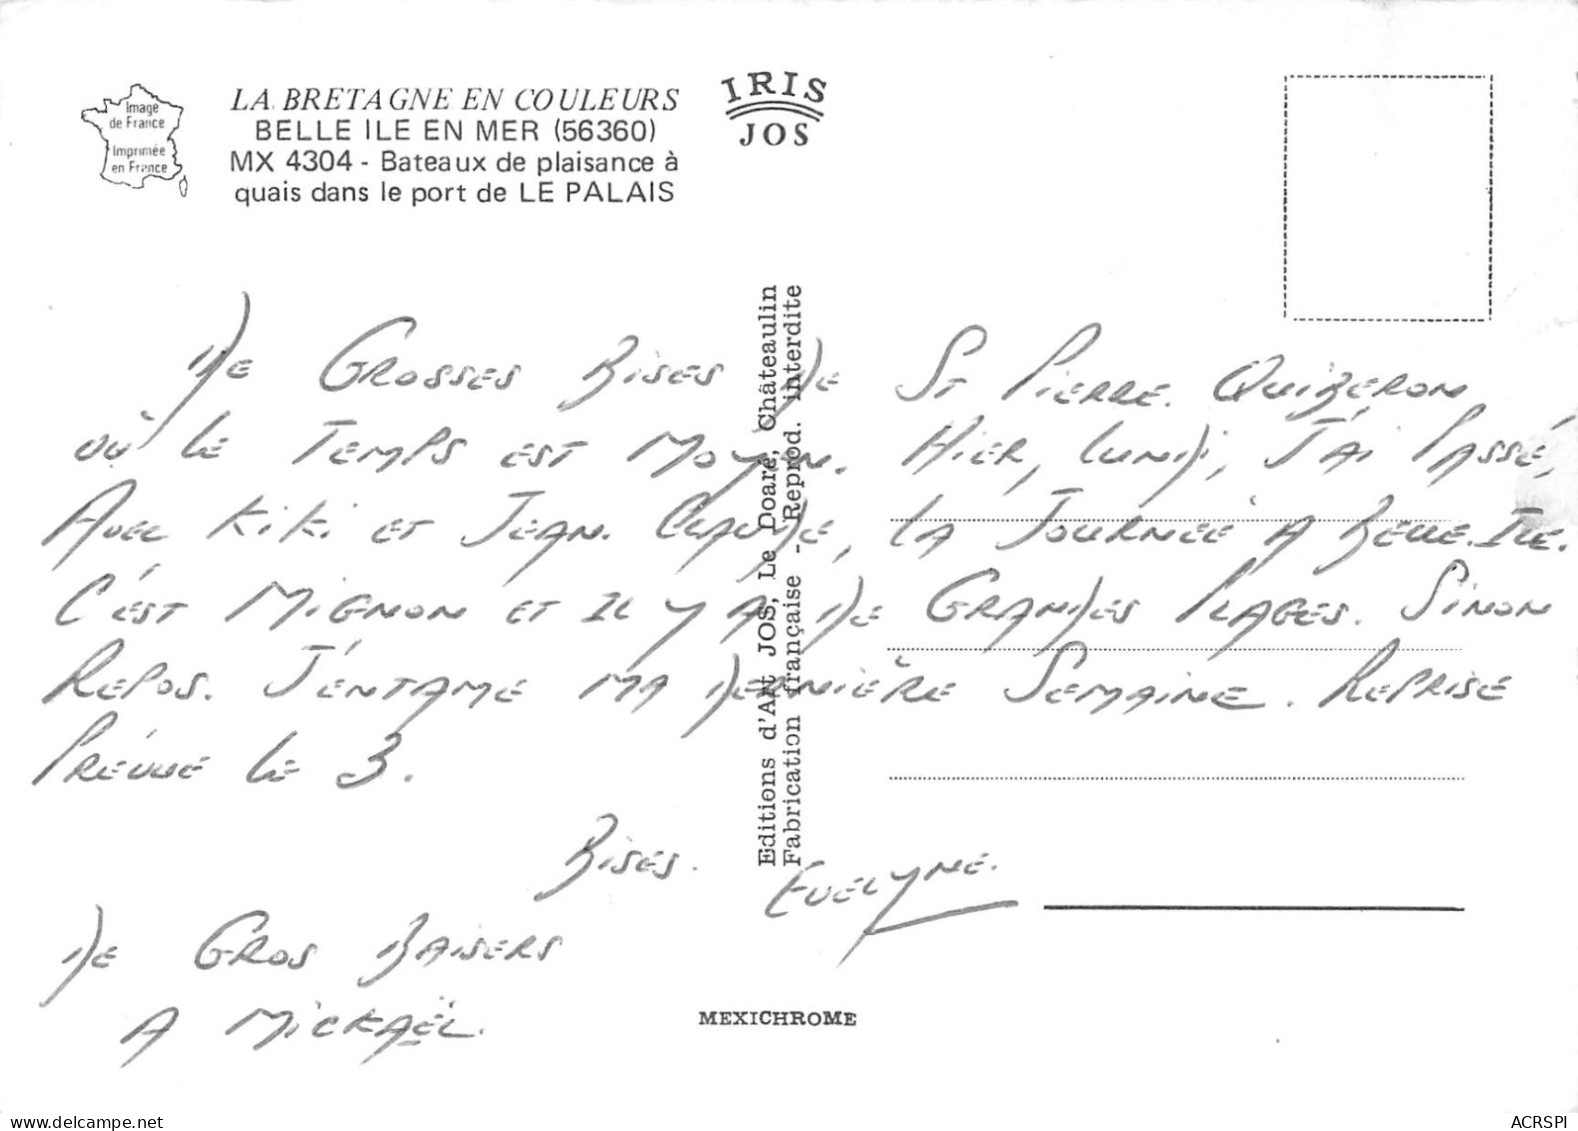 Image
de France
Imprimée
en France
LA BRETAGNE EN COULEURS
BELLE ILE EN MER (56360)
MX 4304 - Bateaux de plaisance à
quais dans le port de LE PALAIS
IRIS
JOS
De Grosses Bises de St Pierre. Quiberon
où le temps est moyen. Hier, lundi, j'ai passé,
avec Kiki et Jean. Claude, la journée à Belle. Ile.
C'est mignon et il y a de grandes plages. Sinon
repos. J'entame ma dernière semaine. Reprise
prévue le 3.
Bises. Evelyne.
De gros baisers
A Mickaël.
Editions d'Art JOS, Le Doaré, Châteaulin
Fabrication française - Reprod. interdite
MEXICHROME
delcampe.net
ACRSPI